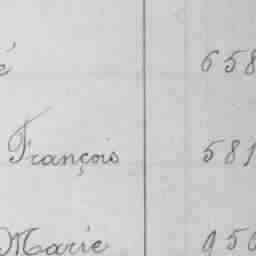 é 658
François 581
Marie 950